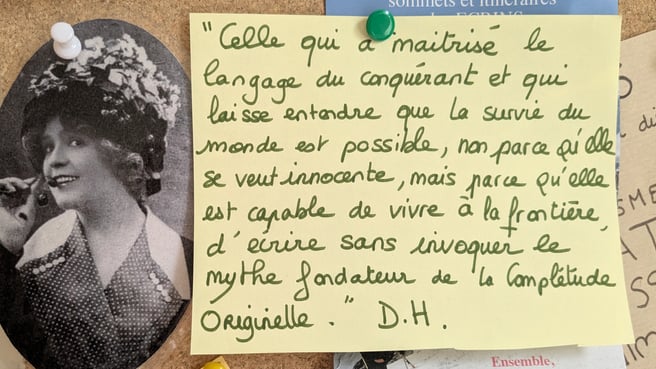 sommets et itinéraires
"Celle qui a maitrisé le
langage du conquérant et qui
laisse entendre que la survie du
monde est possible, non parce qu'elle
se veut innocente, mais parce qu'elle
est capable de vivre à la frontière,
d'écrire sans invoquer le
mythe fondateur de la Complétude
Originelle." D.H.
Ensemble,